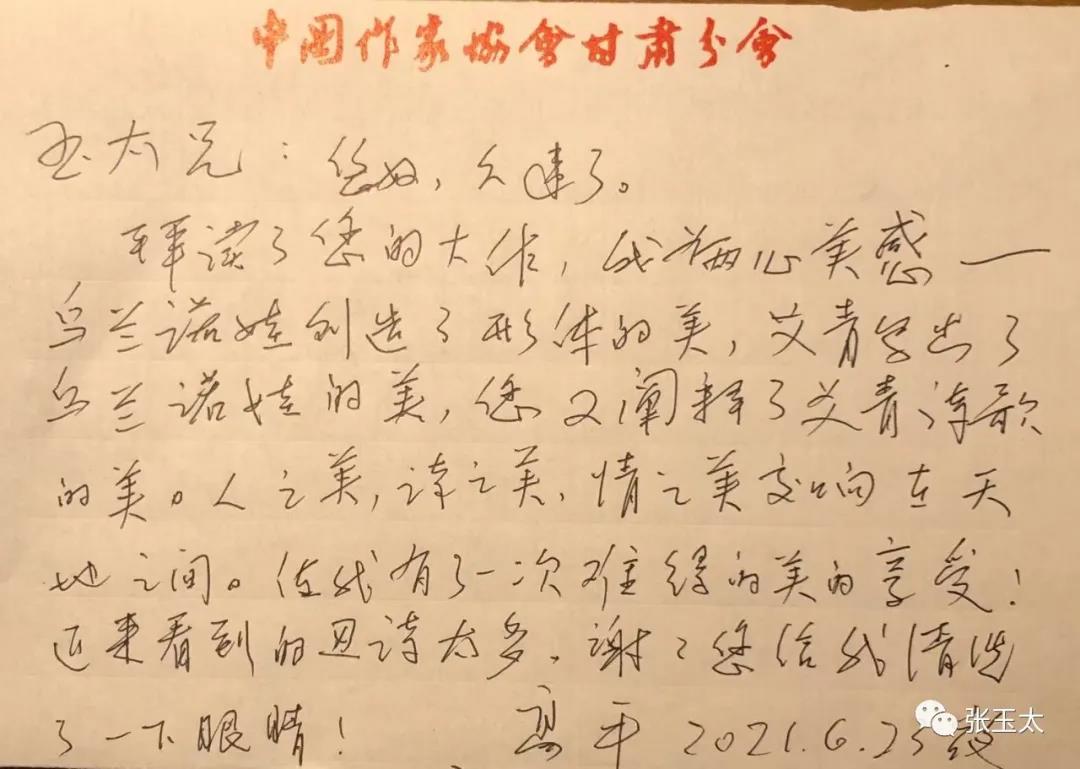 中国作家协会甘肃分会
玉太兄：您好，久违了。
拜读了您的大作，我满心美感——
乌兰诺娃创造了形体的美，艾青写出了
乌兰诺娃的美，您又阐释了艾青诗歌
的美。人之美，诗之美，情之美交响在天
地之间。使我有了一次难得的美的享受！
近来看到的丑诗太多，谢谢您给我清洗
了一下眼睛！ 高平 2021.6.25
张玉太